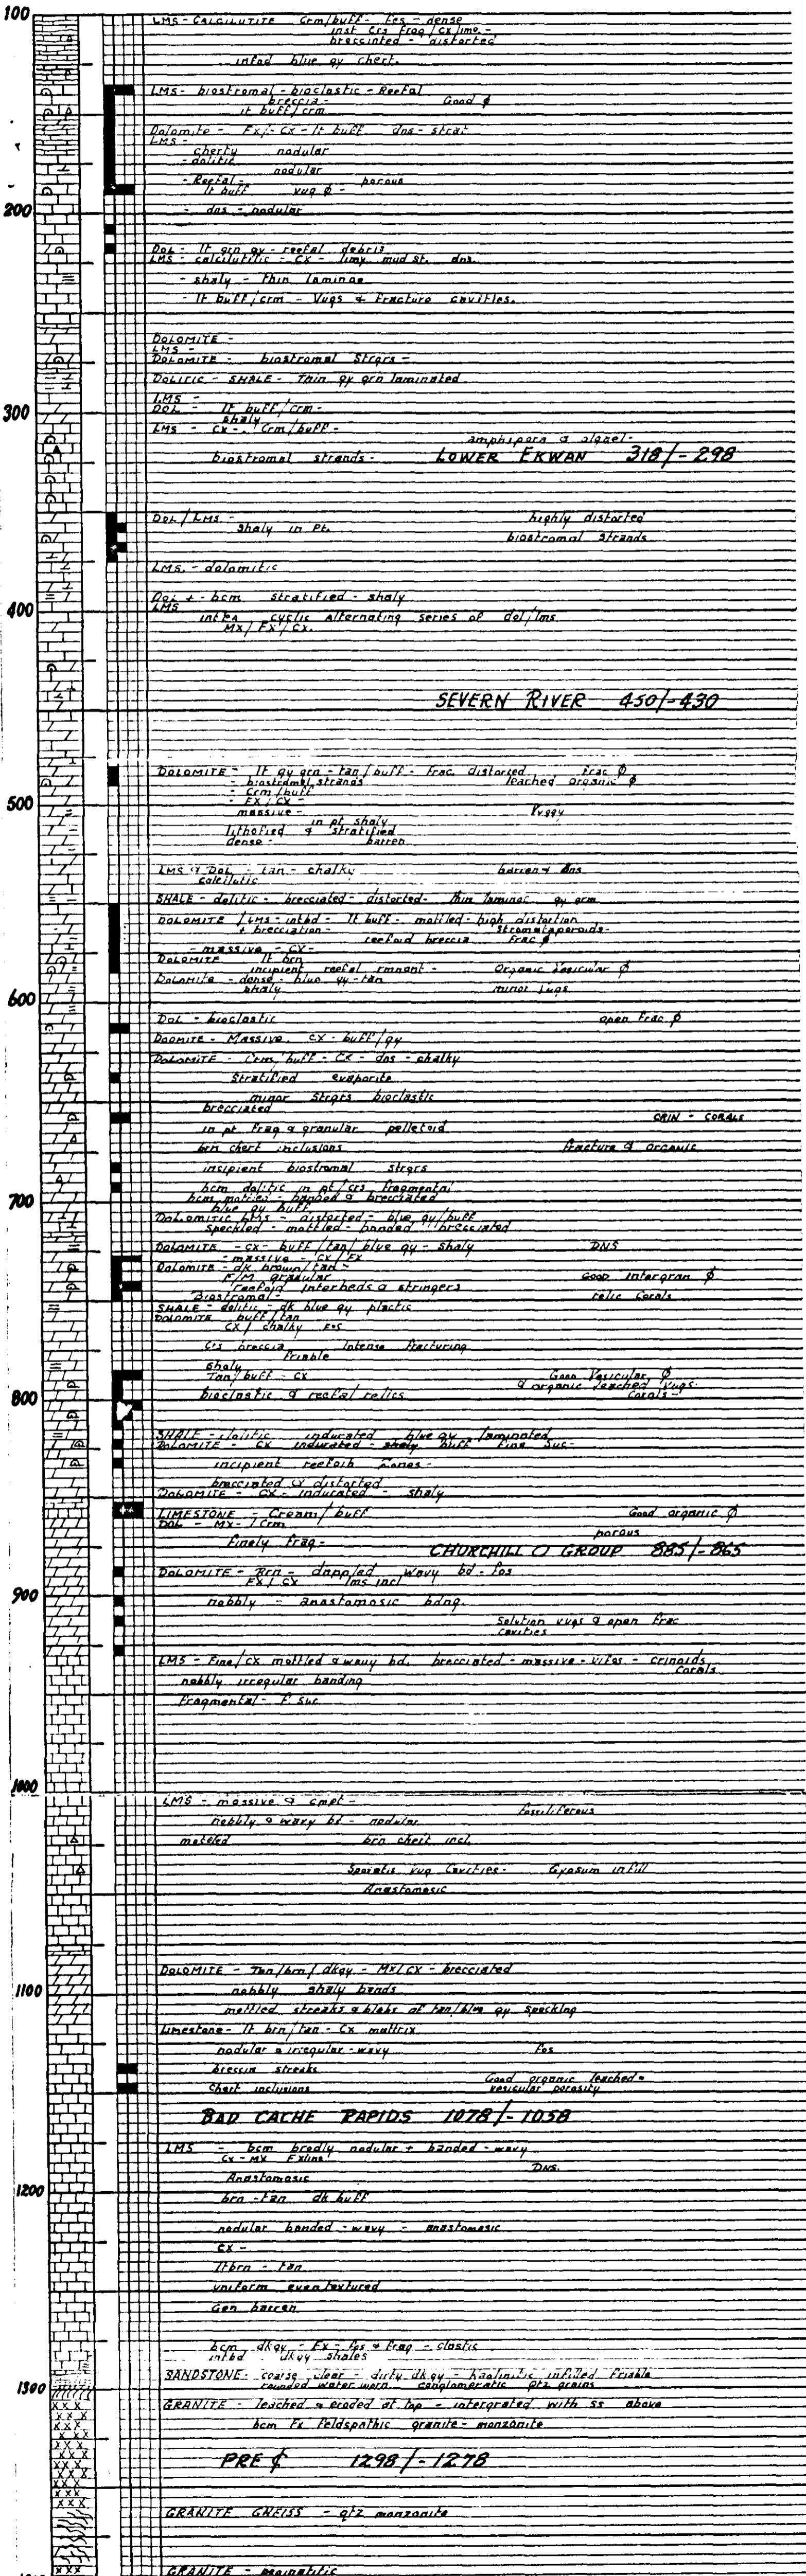 100
LMS - CALCILUTITE Crm/buff - Fos - dense
inst Crs frag/cx/lmo. -
brecciated - distorted
infad blue gy chert.
LMS - biostromal - bioclastic - Reefal
breccia - Good ϕ
lt buff/crm
Dolomite - Fx/-Cx - lt buff dns - strat
LMS -
cherty nodular
- dolitic
nodular
- Reefal - porous
lt buff vug ϕ -
200
- dns - nodular
DOL - lt grn gy - reefal debris
LMS - calcilutitic - CX - limy mud st. dns.
- shaly - thin laminae
- lt buff/crm - Vugs & fracture cavities.
DOLOMITE -
LMS -
DOLOMITE - biostromal Strgrs -
DOLITIC - SHALE - thin gy grn laminated
300
LMS -
DOL - lt buff/crm -
shaly
LMS - CX - Crm/buff -
amphipora &
LOWER EKWAN 318/-298
biostromal strands -
DOL/LMS - highly distorted
shaly in pt.
biostromal strands
LMS. - dolomitic
400
DOL + - bcm stratified - shaly
LMS
cyclic Alternating series of dol/lms
MX/FX/CX.
SEVERN RIVER 450/-430
DOLOMITE - lt gy grn - tan/buff - frac. distorted frac ϕ
- biostromal strands leached organic ϕ
- Crm/buff
- FX/CX -
500
massive - Vuggy
in pt shaly
lithofied & stratified
dense - barren
LMS & DOL - tan - chalky barren & dns
calcilutic
SHALE - dolitic - brecciated - distorted - thin laminae gy grn
DOLOMITE / LMS - intbd - lt buff - mottled - high distortion
+ brecciation - Stromataporoids -
reefoid breccia frac ϕ
- massive - CX -
DOLOMITE lt brn
incipient reefal rmnant - Organic Vesicular ϕ
DOLOMITE - dense - blue gy - tan
shaly minor vugs
600
DOL - bioclastic open frac ϕ
DOOMITE - Massive. CX - buff/gy
DOLOMITE - Crm/buff - CX - dns - chalky
Stratified evaporite
minor strgrs bioclastic
brecciated CRIN - CORALS
in pt frag & granular pelletoid
brn chert inclusions fracture & organic
incipient biostromal strgrs
bcm dolitic in pt/crs fragmental
700
bcm mottled - banded & brecciated
blue gy buff
DOLOMITIC LMS - distorted - blue gy/buff
speckled - mottled - banded brecciated
DOLOMITE - CX - buff/tan/blue gy - shaly DNS
- massive - CX/FX
DOLOMITE - dk brown/tan -
F/M granular Good intergran ϕ
reefoid interbeds & stringers
Biostromal - relic corals
SHALE - dolitic - dk blue gy plastic
DOLOMITE buff/tan
CX/chalky Fos
Crs breccia Intense fracturing
friable
shaly
Tan/buff - CX Good Vesicular ϕ
& organic leached vugs.
800
bioclastic & reefal relics Corals -
SHALE - dolitic indurated blue gy laminated
DOLOMITE - CX indurated - shaly buff fine Suc -
incipient reefoid Zones -
brecciated & distorted
DOLOMITE - CX - indurated - shaly
LIMESTONE - Cream/buff Good organic ϕ
DOL - MX - /Crm
porous
finely frag -
CHURCHILL O GROUP 885/-865
DOLOMITE - Brn - dappled wavy bd - fos
FX/CX lms incl
900
nobbly - anastamosic bdng.
Solution vugs & open frac
cavities -
LMS - Fine/CX mottled & wavy bd. brecciated - massive - vifos - crinoids
Corals
nobbly irregular banding
Fragmental - F Suc
1000
LMS - massive & cmpt -
fossiliferous
nobbly & wavy bd - nodular
mottled brn chert incl.
Sporatic vug Cavities - Gypsum infill
Anastomosic
DOLOMITE - Tan/brn/dkgy - MX/CX - brecciated
1100
nobbly shaly bands
mottled streaks & blebs of tan/blue gy specking
Limestone - lt brn/tan - CX mattrix
nodular & irregular - wavy fos
breccia streaks
Good organic leached -
Chert inclusions vesicular porosity
BAD CACHE RAPIDS 1078/-1058
LMS - bcm bradly nodular + banded - wavy
CX - MX FXline
DNS.
Anastomosic
1200
brn - tan dk buff
nodular banded - wavy - anastomosic
CX -
lt brn - tan
uniform even textured
Gen barren
bcm dkgy - FX - fos & frag - clastic
intbd dkgy shales
1300
SANDSTONE - coarse clear - dirty dkgy - kaolinitic infilled friable
rounded water worn - conglomeratic qtz grains
GRANITE - leached & eroded at top - intergrated with ss above
bcm FX feldspathic granite - monzonite
PRE ₵ 1298/-1278
GRANITE GNEISS - qtz monzonite
GRANITE - pegmatitic